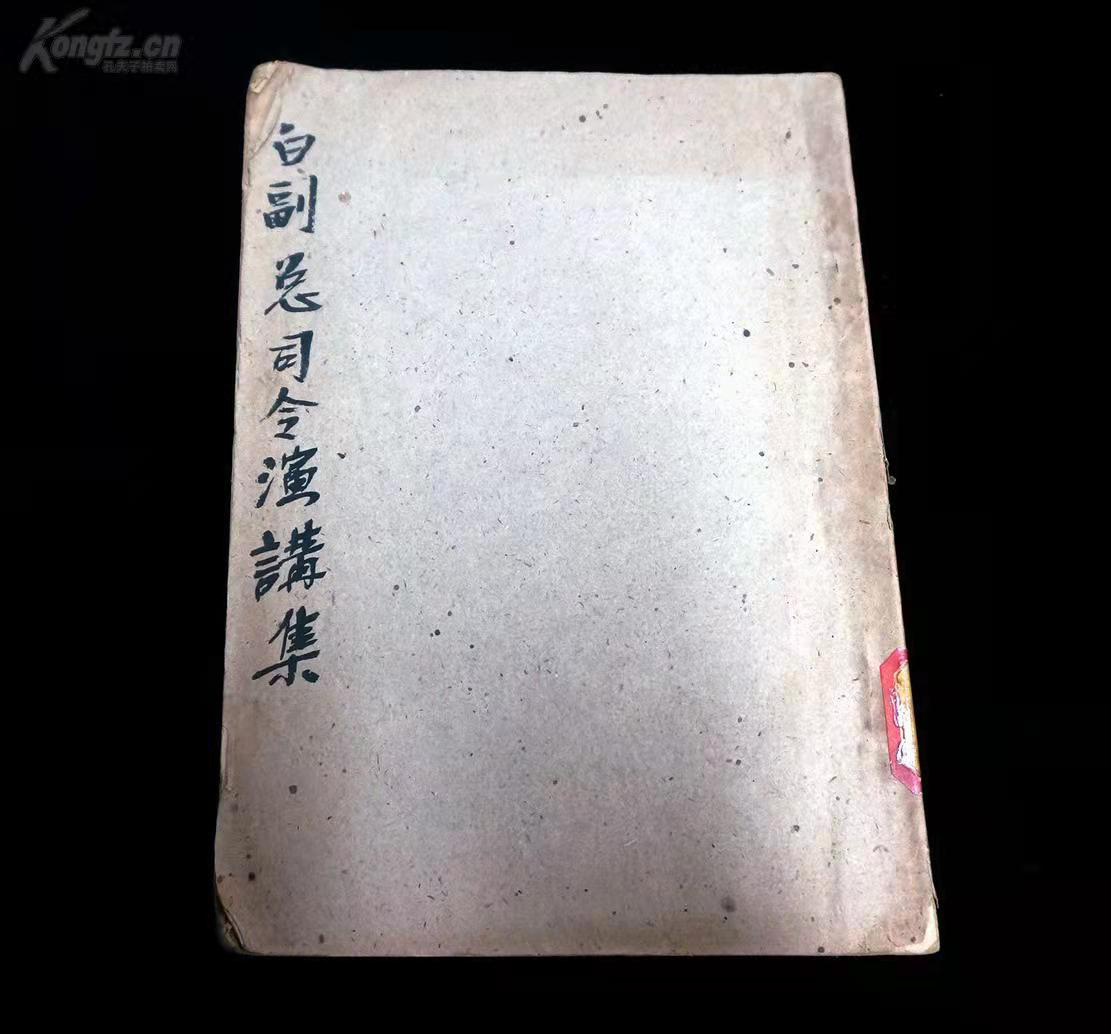 Kongfz.cn
孔夫子拍卖网
白副总司令演講集